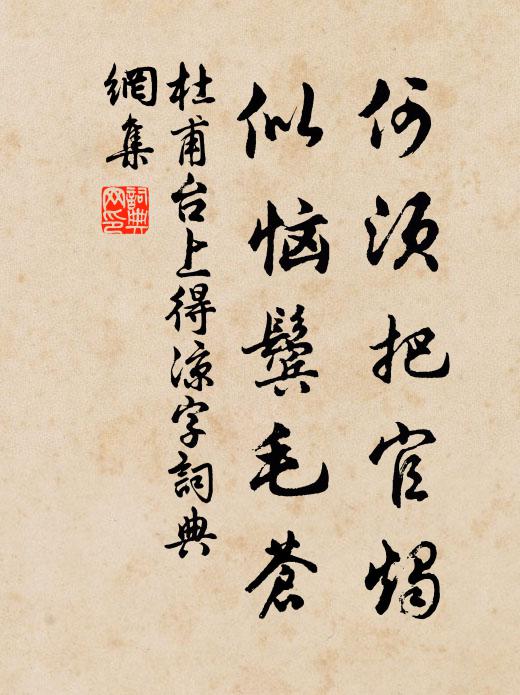 何须把官烛
似恼鬓毛苍
杜甫台上得凉字詞典
網集
詞典
网印